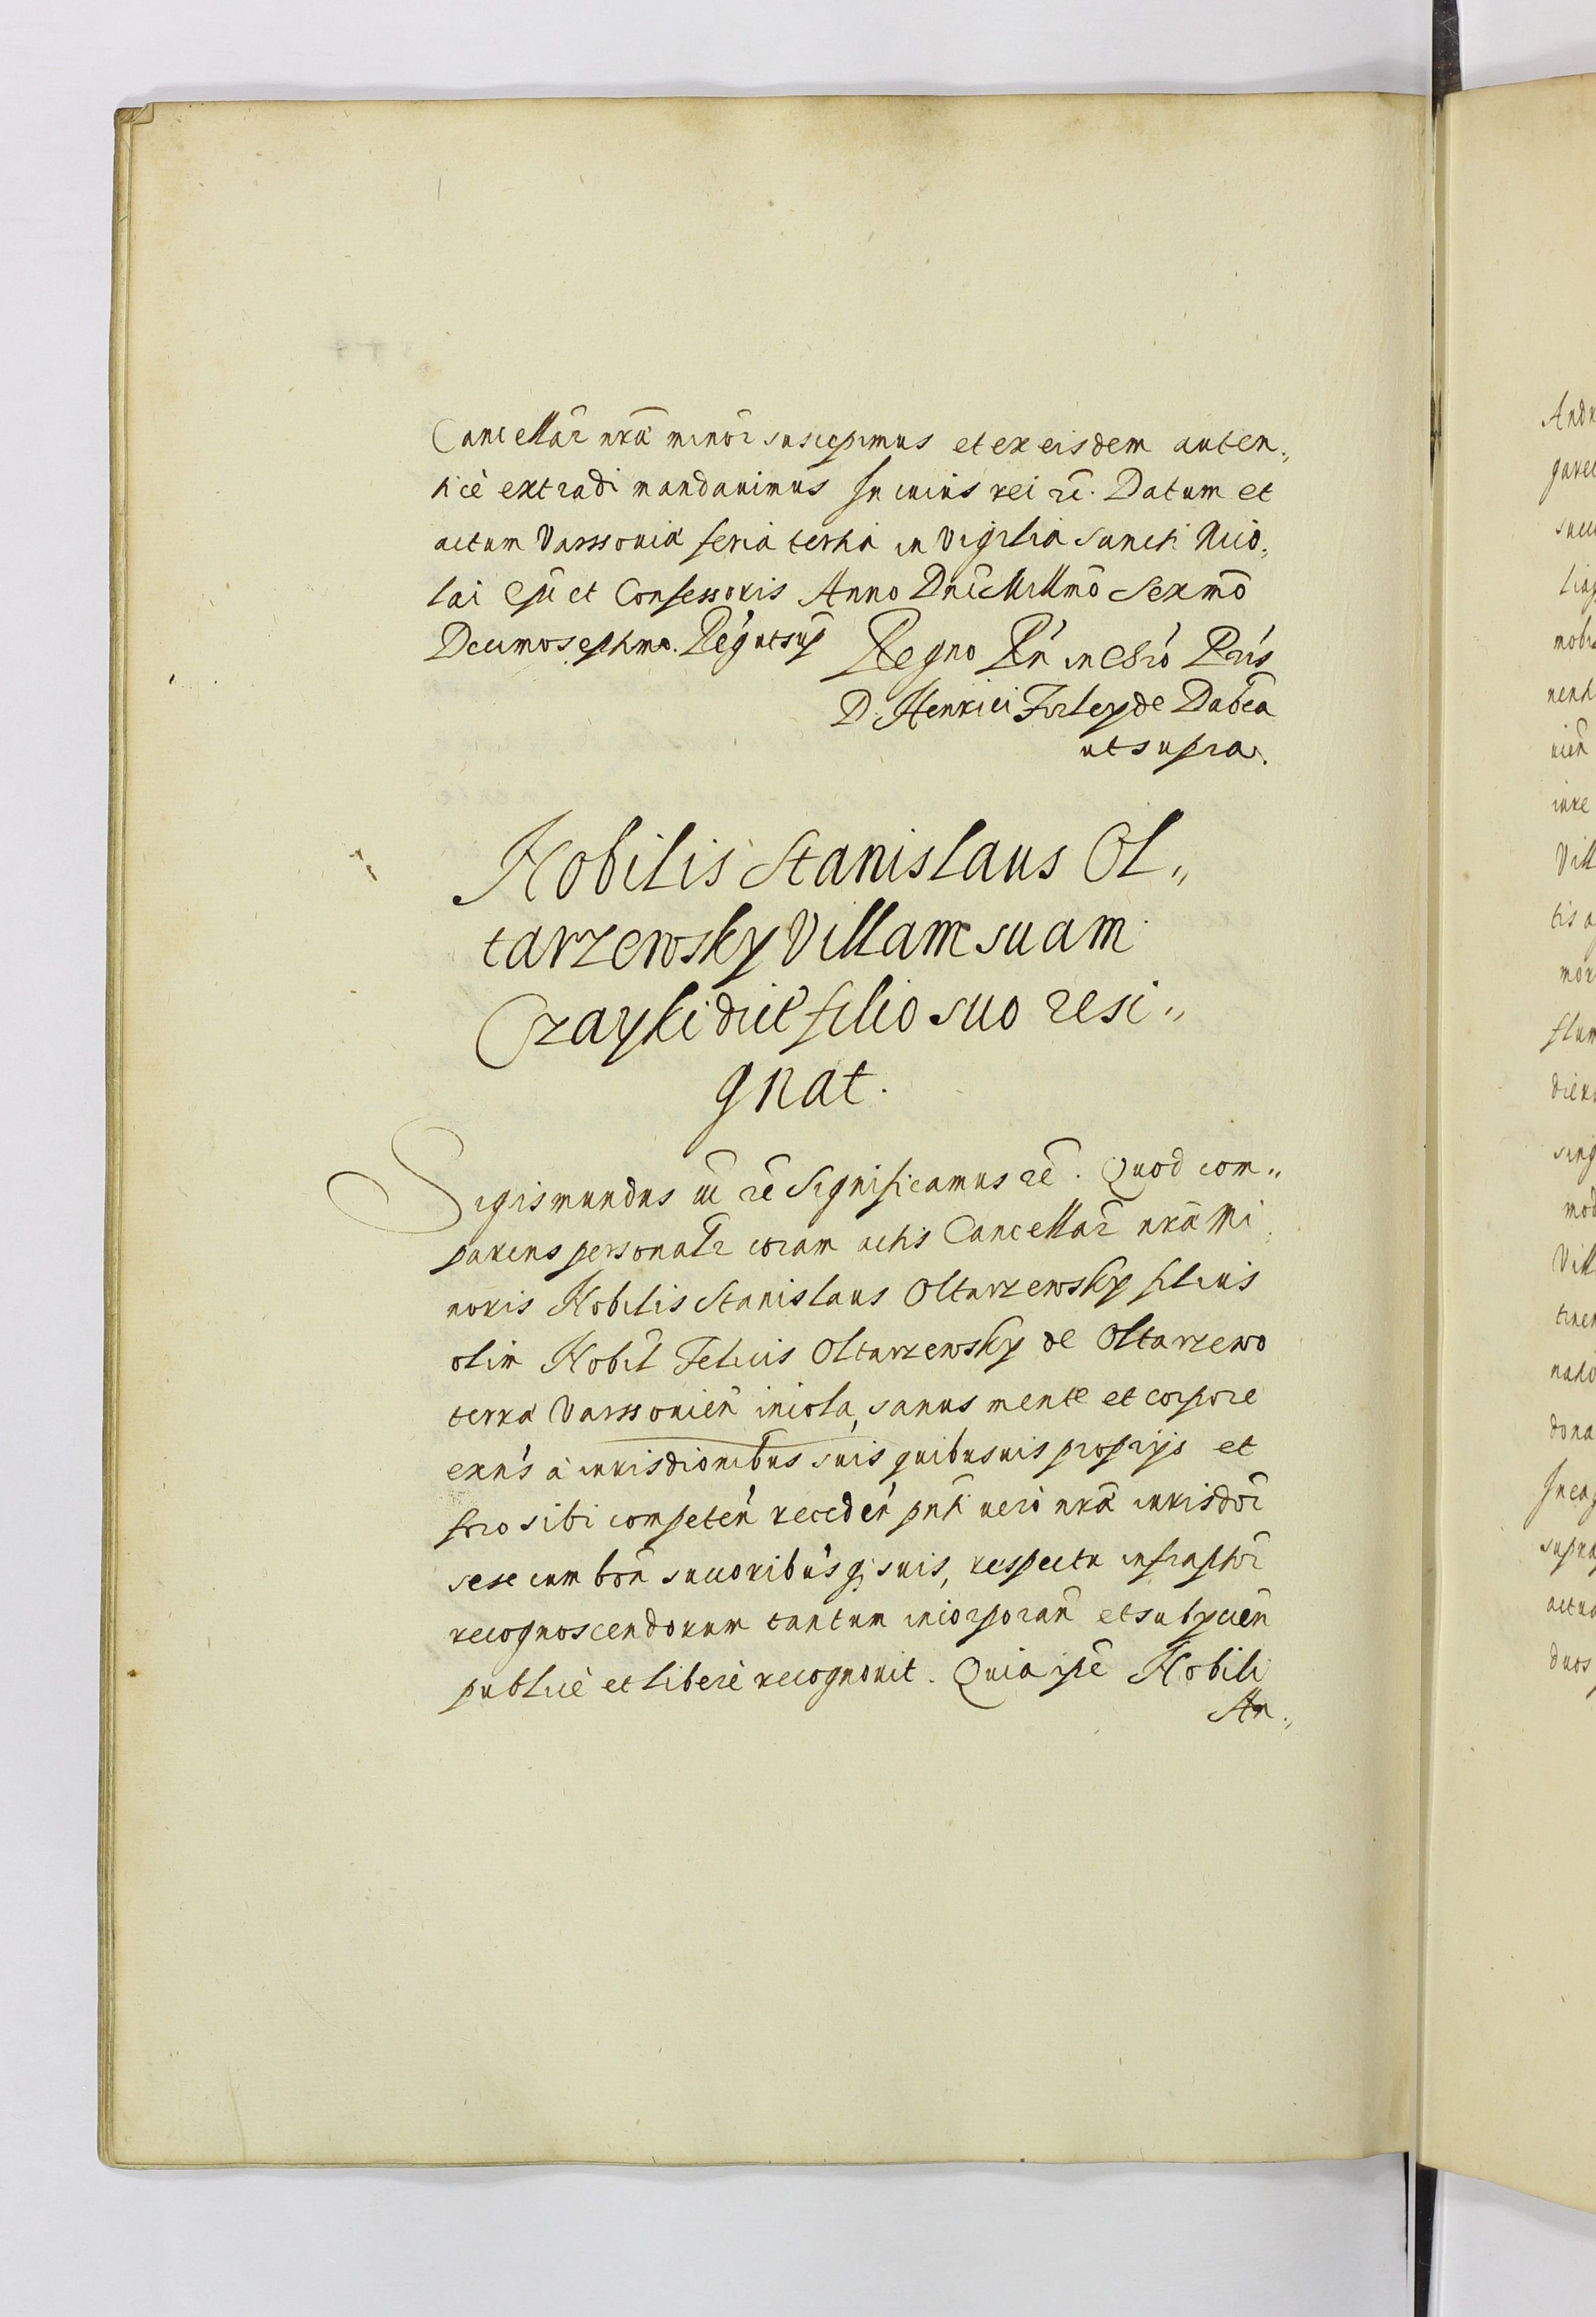 Cancellar̃ nrã minor̃ suscepimus et ex eisdem auten„
ticè extradi mandavimus In cuius rei rẽ. Datum et
actum Varssoviæ feria tertia in Vigilia Sancti Nico„
lai Epĩ et Confessoris Anno Dnĩ Millmõ Sexmõ
Decimoseptimo. Reg utsup̃
Regno Rñ in chró Pris
D. Henrici Firley de Dabrõa
ut supra.
Nobilis Stanislaus Ol„
tarzewsky Villam suam
Czayki dict̃ filio suo resi„
gnat.
Sigismundus iii rẽ Significamus rẽ. Quod com„
parens personalr̃ coram actis Cancellar̃ nrã Mi„
noris Nobilis Stanislaus Oltarzewsky filius
olim Nobil̃ Felicis Oltarzewsky de Oltarzewo
terræ Varssovieñ incola, sanus mente et corpore
exñs à iurisdiõnibus suis quibusuis proprijs et
foro sibi competeñ recedeñ pñti verò nræ iurisdõi
sese cum boñ successoribusq; suis, respectu infraptõr
recognoscendorum tantum incorporañ et subijcieñ
publicè et liberè recognovit. Quia ipẽ Nobili
An„
Andr
garei
succ
mobi
iure
Vill
tis a
mor
flum
sing
mod
Vill
tinen
dona
supra
actus
duos